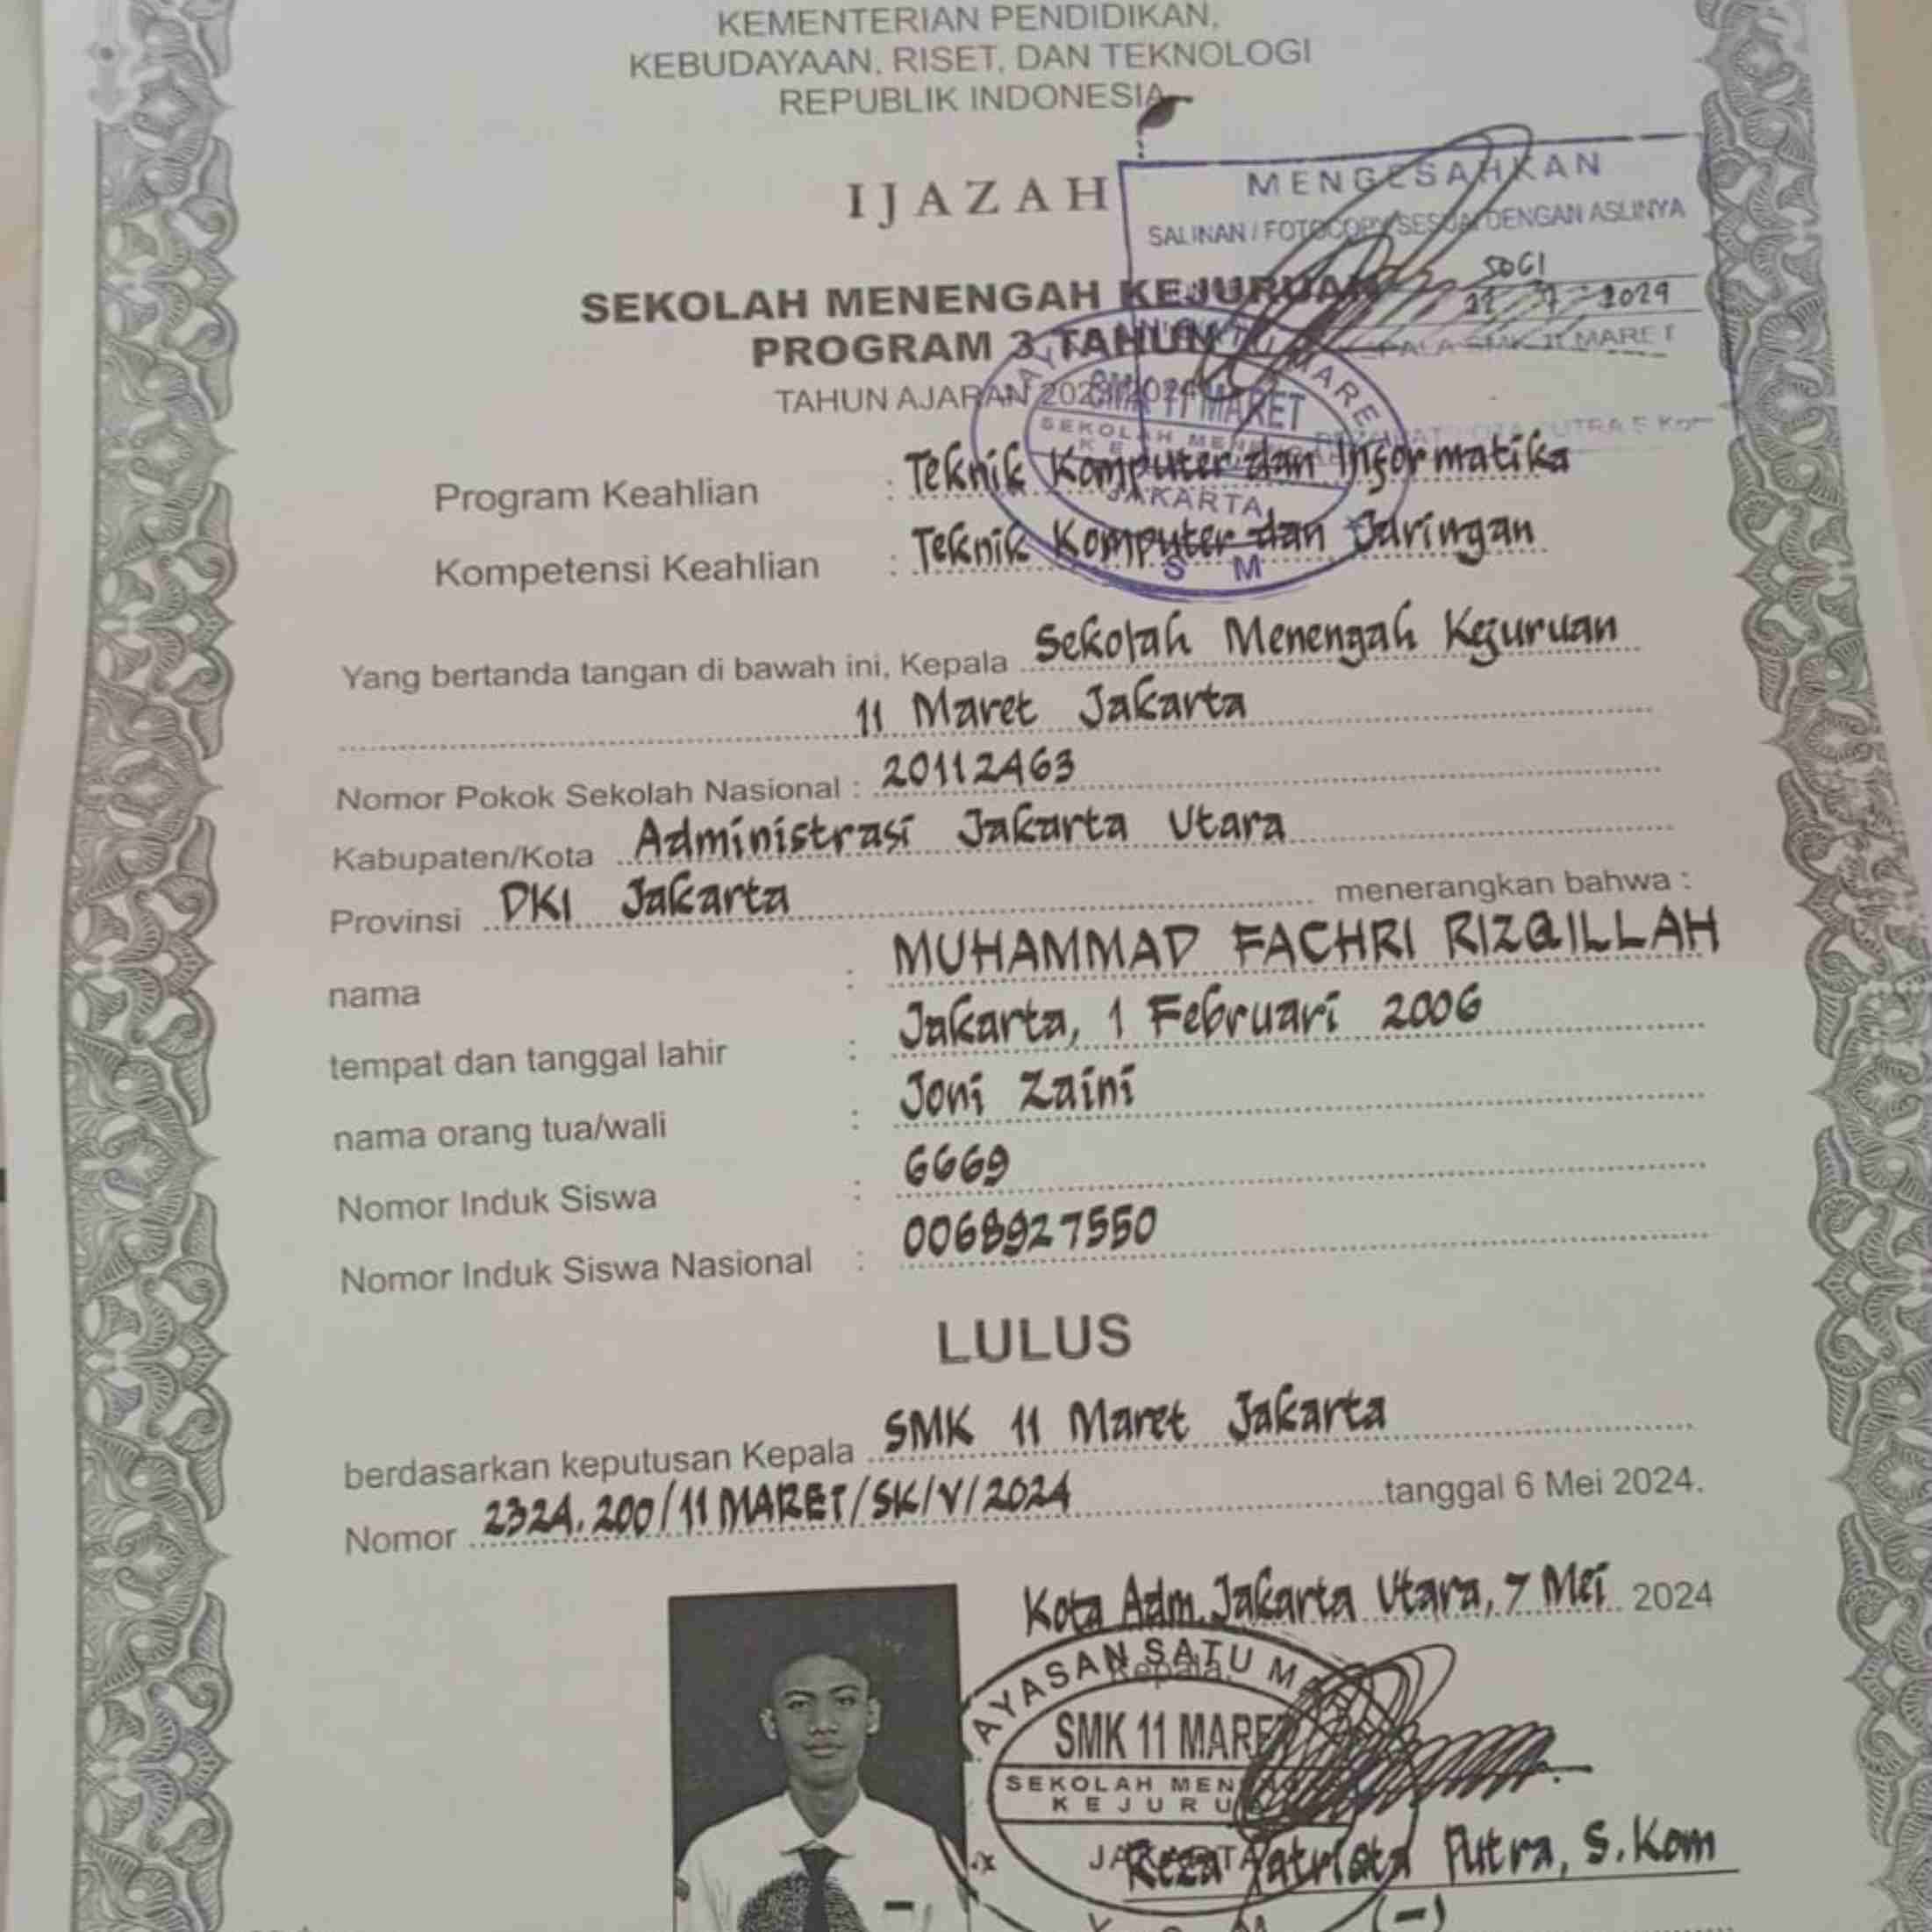 KEMENTERIAN PENDIDIKAN,
KEBUDAYAAN, RISET, DAN TEKNOLOGI
REPUBLIK INDONESIA
IJAZAH
MENGESAHKAN
SALINAN / FOTOCOPY SESUAI DENGAN ASLINYA
SEKOLAH MENENGAH KEJURUAN
PROGRAM 3 TAHUN
SMK 11 MARET
TAHUN AJARAN 2023/2024
SMK 11 MARET
SEKOLAH MENENGAH
JAKARTA
S M
Program Keahlian : Teknik Komputer dan Informatika
Kompetensi Keahlian : Teknik Komputer dan Jaringan
Yang bertanda tangan di bawah ini, Kepala Sekolah Menengah Kejuruan
11 Maret Jakarta
Nomor Pokok Sekolah Nasional : 20112463
Kabupaten/Kota Administrasi Jakarta Utara
Provinsi DKI Jakarta menerangkan bahwa :
nama : MUHAMMAD FACHRI RIZQILLAH
tempat dan tanggal lahir : Jakarta, 1 Februari 2006
nama orang tua/wali : Joni Zaini
Nomor Induk Siswa : 6669
Nomor Induk Siswa Nasional : 0068927550
LULUS
berdasarkan keputusan Kepala SMK 11 Maret Jakarta
Nomor 2324.200/11 MARET/SK/V/2024 tanggal 6 Mei 2024.
Kota Adm. Jakarta Utara, 7 Mei 2024
Kepala,
YAYASAN SATU
SMK 11 MARET
SEKOLAH
JAKARTA
Reza Patriota Putra, S.Kom
(-)